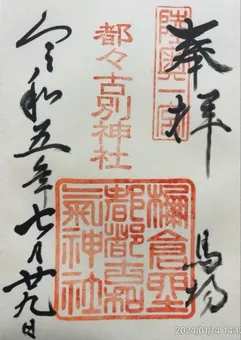 奉拝
陸奥一宮
馬場
都々古別神社
倉
都都古和
氣神社
令和五年七月廿九日
2024/01/14